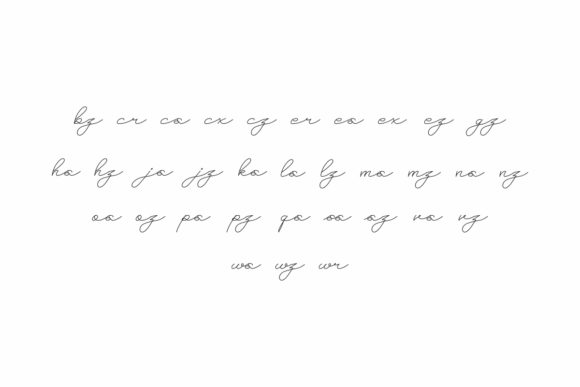 bz cr co cx cz er eo ex ez gz
ho hz jo jz ko lo lz mo mz no nz
oo oz po pz qo so sz vo vz
wo wz wr